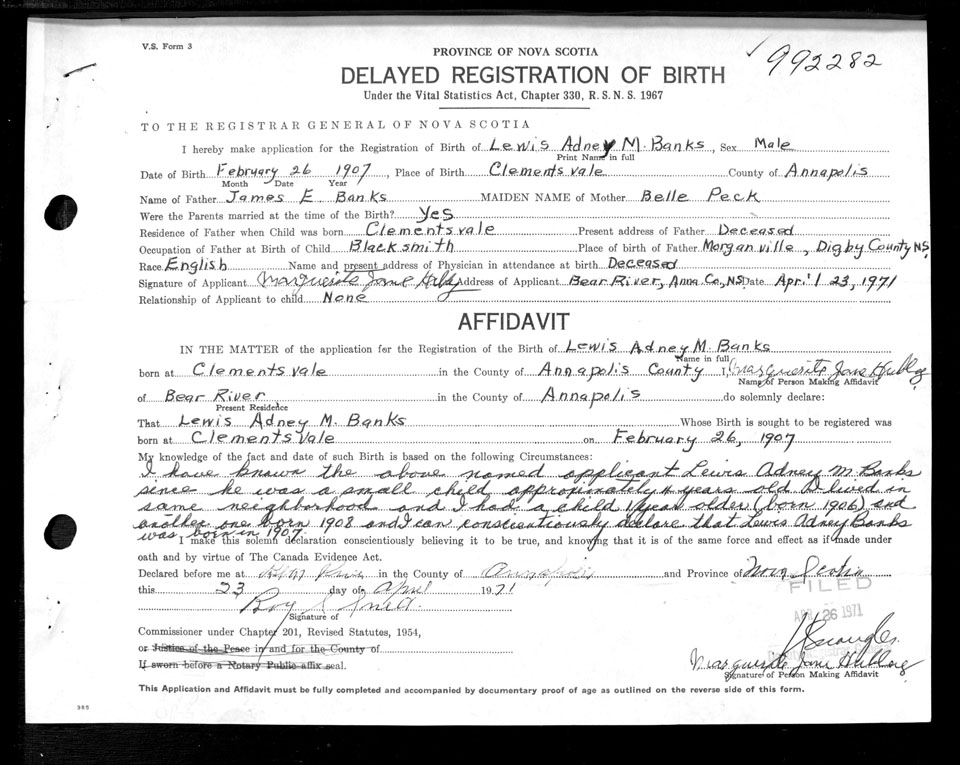 V.S. Form 3
PROVINCE OF NOVA SCOTIA
992282
DELAYED REGISTRATION OF BIRTH
Under the Vital Statistics Act, Chapter 330, R.S.N.S. 1967
TO THE REGISTRAR GENERAL OF NOVA SCOTIA
I hereby make application for the Registration of Birth of Lewis Adney M. Banks, Sex Male
Print Name in full
Date of Birth February 26 1907, Place of Birth Clementsvale County of Annapolis
Month Date Year
Name of Father James E. Banks MAIDEN NAME of Mother Belle Peck
Were the Parents married at the time of the Birth? Yes
Residence of Father when Child was born Clementsvale Present address of Father Deceased
Occupation of Father at Birth of Child Blacksmith Place of birth of Father Morganville, Digby County NS,
Race English Name and present address of Physician in attendance at birth Deceased
Signature of Applicant Marguerite Jane Address of Applicant Bear River, Anna Co., NS Date April 23, 1971
Relationship of Applicant to child None
AFFIDAVIT
IN THE MATTER of the application for the Registration of the Birth of Lewis Adney M. Banks
Name in full
born at Clementsvale in the County of Annapolis County I, Marguerite Jane
Name of Person Making Affidavit
of Bear River in the County of Annapolis do solemnly declare:
Present Residence
That Lewis Adney M. Banks Whose Birth is sought to be registered was
born at Clementsvale on February 26, 1907
My knowledge of the fact and date of such Birth is based on the following Circumstances:
I have known the above named applicant Lewis Adney M. Banks
since he was a small child approximately 4 years old I lived in
same neighborhood and I had a child 1 year older (born 1906) and
another one born 1908 and I can conscientiously declare that Lewis Adney Banks
was born in 1907.
I, make this solemn declaration conscientiously believing it to be true, and knowing that it is of the same force and effect as if made under
oath and by virtue of The Canada Evidence Act.
Declared before me at in the County of Annapolis and Province of Nova Scotia
this 23 day of April 1971
FILED
APR 26 1971
Roy
Signature of
Commissioner under Chapter 201, Revised Statutes, 1954,
or Justice of the Peace in and for the County of
If sworn before a Notary Public affix seal.
Marguerite Jane
Signature of Person Making Affidavit
This Application and Affidavit must be fully completed and accompanied by documentary proof of age as outlined on the reverse side of this form.
385